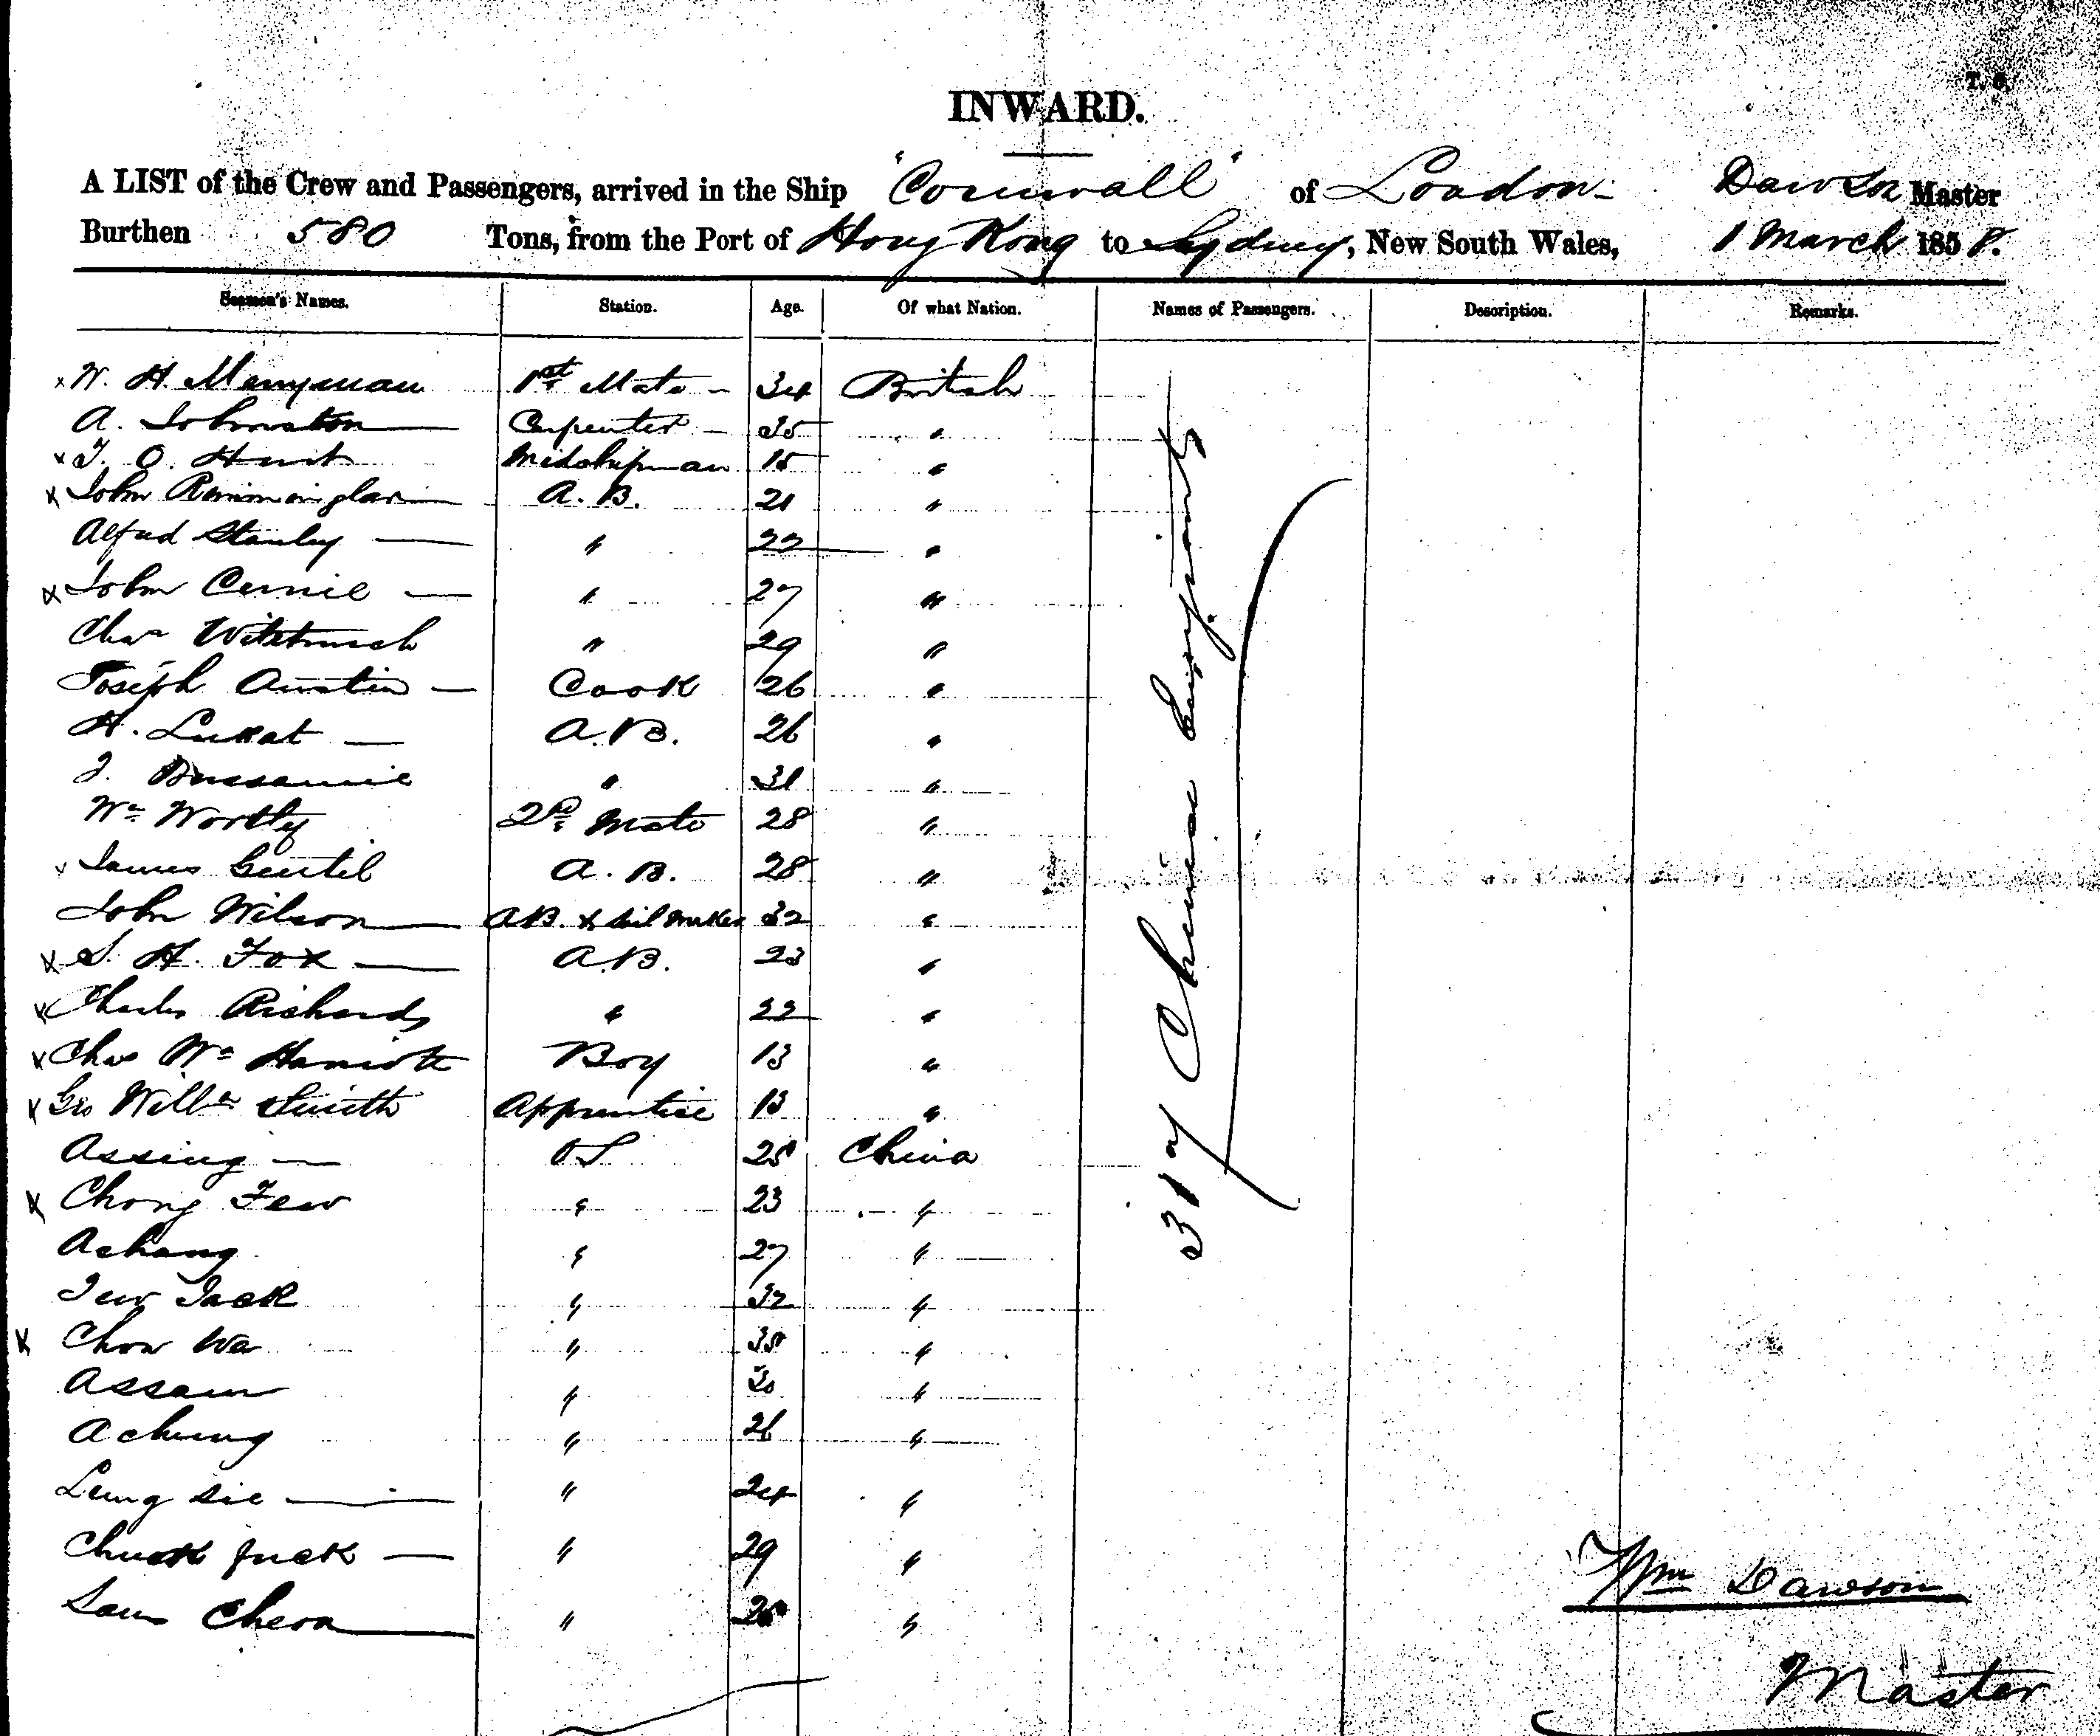 T. 6.
INWARD.
A LIST of the Crew and Passengers, arrived in the Ship "Cornwall" of London Dawson Master
Burthen 580 Tons, from the Port of Hong Kong to Sydney, New South Wales, 1 March 1858.
Seamen's Names. Station. Age. Of what Nation. Names of Passengers. Description. Remarks.
x W. H. Merryman 1st Mate 34 British
A. Johnston Carpenter 35 "
x T. O. Hunt Midshipman 15 "
x John A.B. 21 "
Alfred Stanley " 22 "
x John " 27 "
Chas " 29 "
Joseph Austin Cook 26 "
H. A.B. 26 "
J. " 31 "
Wm Wortley 2nd Mate 28 "
x James Gentil A.B. 28 "
John Wilson AB. & Sail Maker 32 "
x S. H. Fox A.B. 23 "
x Charles Richards " 22 "
x Chas Wm Boy 13 "
x Geo Smith Apprentice 13 "
Assing OS 25 China
x Chong Few " 23 "
Achang " 27 "
Jack " 32 "
x Chow Wa " 35 "
Assam " 30 "
Achung " 26 "
Leung Sie " 24 "
Chuck Juck " 29 "
Sam "
317 Chinese Emigrants
Wm Dawson
Master